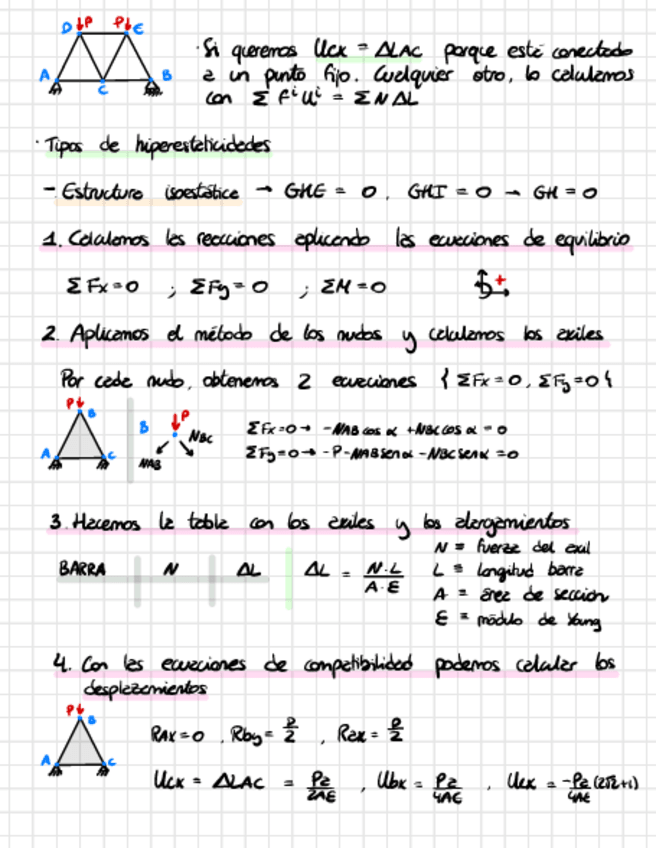 D P P E
A C B
· Si queremos Ucx = ΔLAC porque esté conectado
a un punto fijo. Cualquier otro, lo calculamos
con Σ Fⁱ Uⁱ = Σ N ΔL
· Tipos de hiperestelicidades
- Estructura isoestática → GHE = 0, GHI = 0 → GH = 0
1. Calculamos las reacciones aplicando las ecuaciones de equilibrio
Σ Fx = 0 ; Σ Fy = 0 ; Σ M = 0 +
2. Aplicamos el método de los nudos y calculamos los axiles
Por cada nudo, obtenemos 2 ecuaciones { Σ Fx = 0, Σ Fy = 0 {
P B A C
B P NBC NAB
Σ Fx = 0 → - NAB cos α + NBC cos α = 0
Σ Fy = 0 → - P - NAB sen α - NBC sen α = 0
3. Hacemos la tabla con los axiles y los alargamientos
BARRA N ΔL ΔL = N·L / A·E
N = fuerza del axil
L = longitud barra
A = área de sección
E = módulo de Young
4. Con las ecuaciones de compatibilidad podemos calcular los
desplazamientos
P B A C
RAx = 0 , Rby = P/2 , Rax = P/2
Ucx = ΔLAC = Pa/2AE , Ubx = Pa/4AE , Ucx = -Pa/4AE (2√2+1)